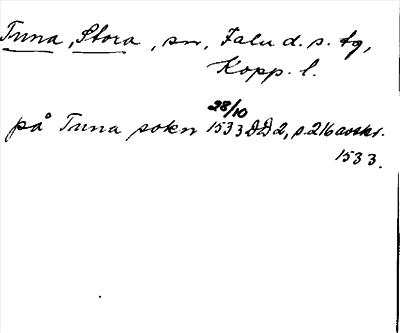 Tuna, Stora, sn, Falu d. s. tg,
Kopp. l.
28/10
på Tuna sokn 1533 DD 2, s. 216 avskr.
1533.